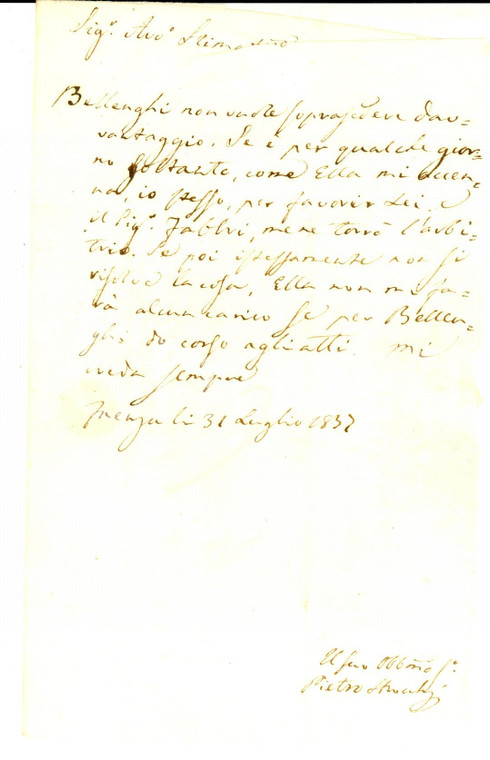 Sig.r Avv.o Stimatmo
Bellenghi non vuole soprasedere dav-
vantaggio. Se è per qualche gior-
no soltanto, come Ella mi accen-
na, io stesso, per favorir Lei, e
il Sig.r Fabbri, me ne torrò l'arbi-
trio. Se poi istessamente non si
risolve la cosa, Ella non mi fa-
rà alcun carico se per Bellen-
ghi do corso agli atti. Mi
creda sempre
Faenza li 31 Luglio 1837
Il suo Obbmo S.e
Pietro Strocchi